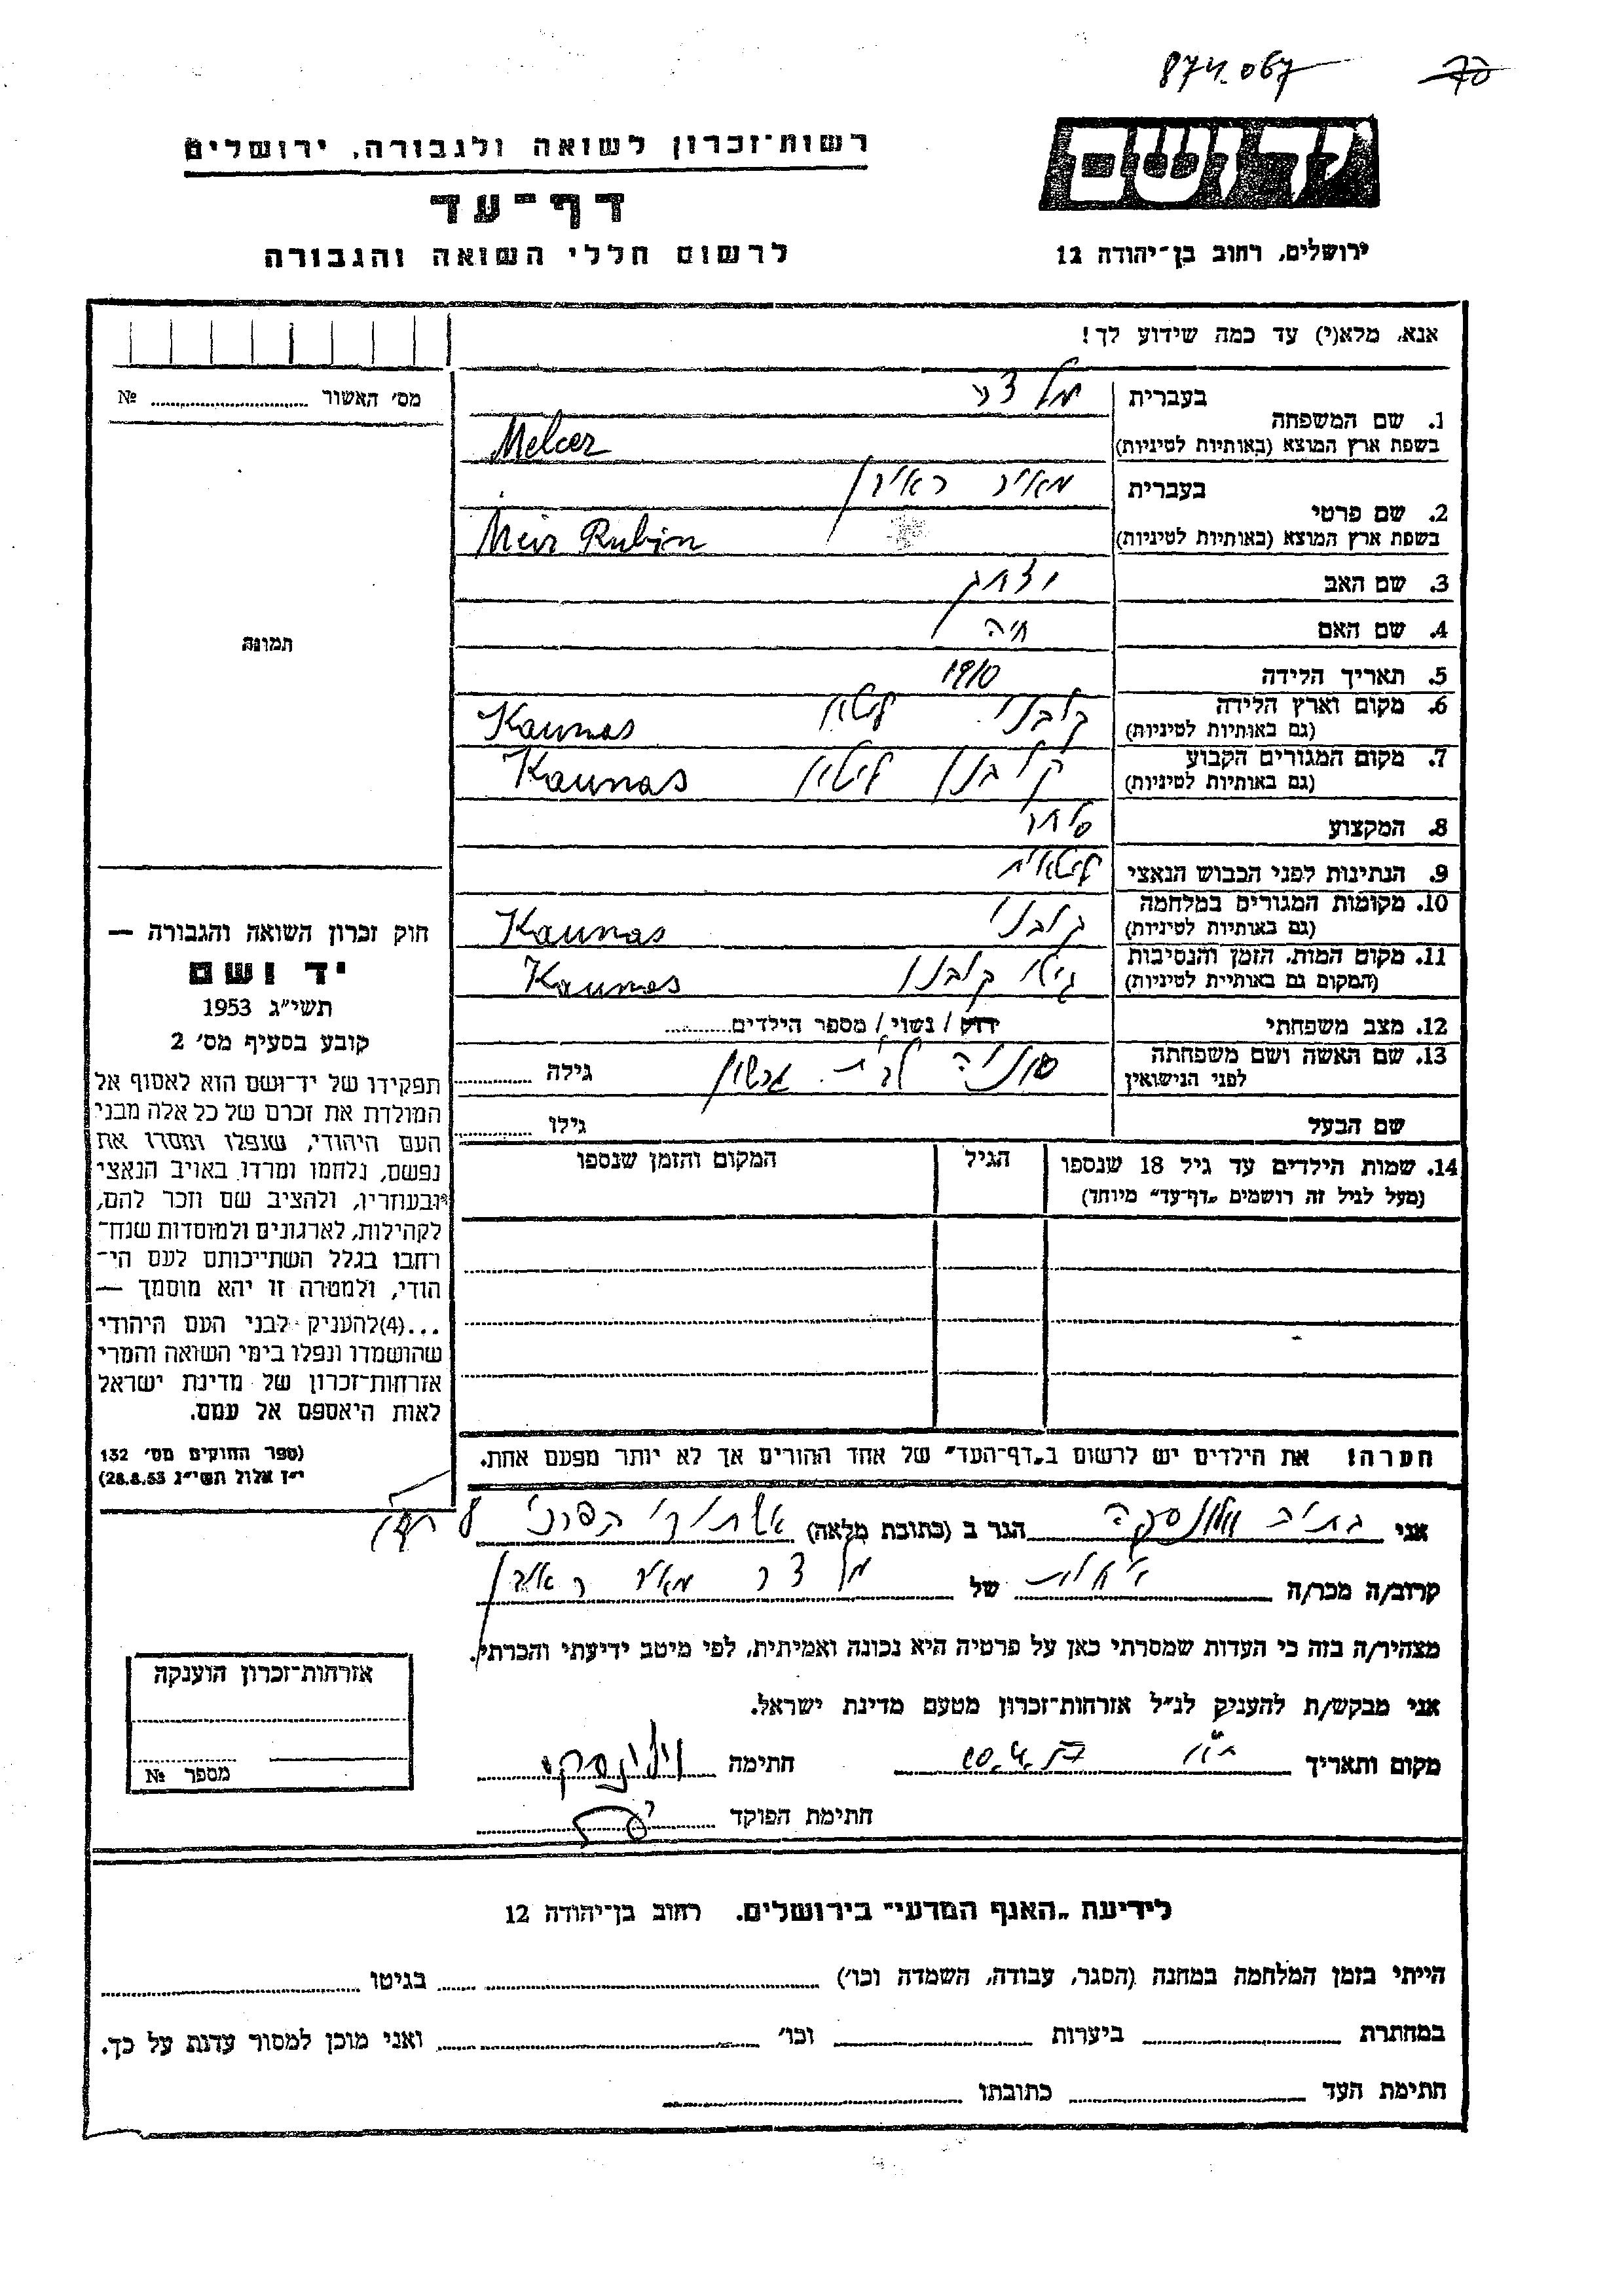 874.067 70
רשות־זכרון לשואה ולגבורה, ירושלים
יד ושם
דף־עד
לרשום חללי השואה והגבורה
ירושלים, רחוב בן־יהודה 12
אנא, מלא(י) עד כמה שידוע לך!
מס׳ האשור № 
1. שם המשפחה
בעברית מלצר
בשפת ארץ המוצא (באותיות לטיניות) Melcer
2. שם פרטי
בעברית מאיר ראובן
בשפת ארץ המוצא (באותיות לטיניות) Meir Rubin
3. שם האב יצחק
4. שם האם חיה
5. תאריך הלידה 1910
6. מקום וארץ הלידה
(גם באותיות לטיניות) קובנו ליטא Kaunas
7. מקום המגורים הקבוע
(גם באותיות לטיניות) קובנו ליטא Kaunas
8. המקצוע סוחר
9. הנתינות לפני הכבוש הנאצי ליטאית
10. מקומות המגורים במלחמה
(גם באותיות לטיניות) קובנו Kaunas
11. מקום המות, הזמן והנסיבות
(המקום גם באותיית לטיניות) גיטו קובנו Kaunas
12. מצב משפחתי רווק / נשוי / מספר הילדים
13. שם האשה ושם משפחתה
לפני הנישואין סוניה לבית גרשון גילה
שם הבעל גילו
14. שמות הילדים עד גיל 18 שנספו הגיל המקום והזמן שנספו
(מעל לגיל זה רושמים „דף־עד״ מיוחד)
תמונה
חוק זכרון השואה והגבורה —
יד ושם
תשי״ג 1953
קובע בסעיף מס׳ 2
תפקידו של יד־ושם הוא לאסוף אל
המולדת את זכרם של כל אלה מבני
העם היהודי, שנפלו ומסרו את
נפשם, נלחמו ומרדו באויב הנאצי
ובעוזריו, ולהציב שם וזכר להם,
לקהילות, לארגונים ולמוסדות שנח־
רחבו בגלל השתייכותם לעם הי־
הודי, ולמטרה זו יהא מוסמך —
...(4)להעניק לבני העם היהודי
שהושמדו ונפלו בימי השואה והמרי
אזרחות־זכרון של מדינת ישראל
לאות היאספם אל עמם.
(ספר החוקים מס׳ 132
י״ז אלול תשי״ג 28.8.53)
הערה! את הילדים יש לרשום ב„דף־העד״ של אחד ההורים אך לא יותר מפעם אחת.
אני הגר ב (כתובת מלאה)
קרוב/ה מכר/ה של מלצר מאיר ראובן
מצהיר/ה בזה כי העדות שמסרתי כאן על פרטיה היא נכונה ואמיתית, לפי מיטב ידיעתי והכרתי.
אני מבקש/ת להעניק לנ״ל אזרחות־זכרון מטעם מדינת ישראל.
מקום ותאריך ת״א חתימה
חתימת הפוקד
אזרחות־זכרון הוענקה
מספר №
לידיעת „האגף המדעי״ בירושלים. רחוב בן־יהודה 12
הייתי בזמן המלחמה במחנה (הסגר, עבודה, השמדה וכו׳) בגיטו
במחתרת ביערות וכו׳ ואני מוכן למסור עדות על כך.
חתימת העד כתובתו